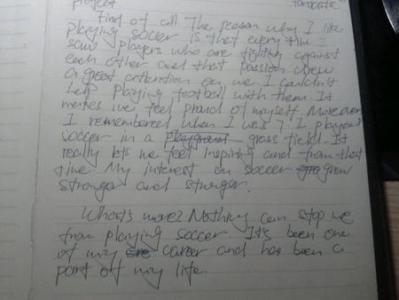 project fanatic
First of all The reason why I like
playing soccer is that every time I
saw players who are fighting against
each other and that passion drew
a great attention on me I couldn't
help playing football with them. It
makes me feel proud of myself. Moreover
I remembered when I was 7 I played
soccer in a playground grass field. It
really lets me feel inspiring and from that
time My interest on soccer grow
stronger and stronger.
What's more? Nothing can stop me
from playing soccer It's been one
of my career and has been a
part of my life.